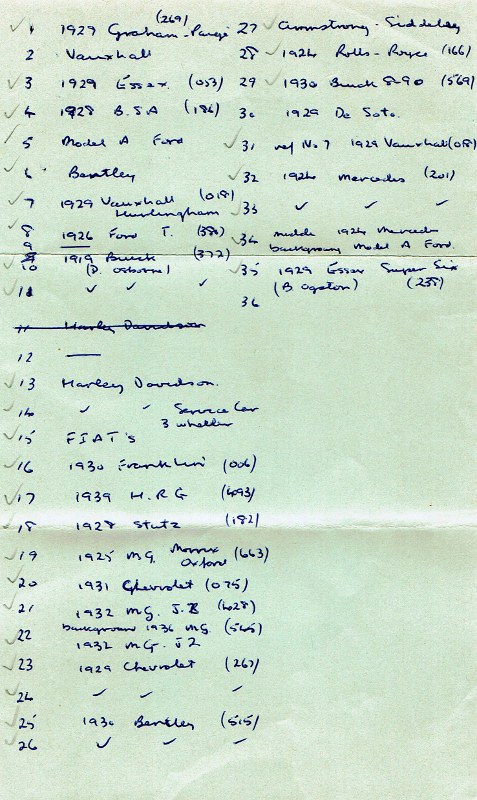 (269)
1 1929 Graham-Paige
2 Vauxhall
3 1929 Essex (053)
4 1928 B.S.A (186)
5 Model A Ford
6 Bentley
7 1929 Vauxhall (018)
Hurlingham
8 1926 Ford T. (384)
9 ——
10 1919 Buick (372)
(D. Osborne)
11 ✓ ✓ ✓
11 Harley Davidson
12 ——
13 Harley Davidson.
14 ✓ ✓ Service Car
3 wheeler
15 FIAT's
16 1930 Franklin (006)
17 1939 H.R.G (493)
18 1928 Stutz (182)
19 1925 M.G. Morris (663)
Oxford
20 1931 Chevrolet (075)
21 1932 M.G. J.2 (628)
22 background 1936 M.G. (565)
1932 M.G. J2
23 1929 Chevrolet (267)
24 ✓ ✓ ✓
25 1930 Bentley (515)
26 ✓ ✓ ✓
27 Armstrong-Siddeley
28 1924 Rolls-Royce (166)
29 1930 Buick 8-90 (569)
30 1929 De Soto.
31 ref No 7 1929 Vauxhall (018)
32 1924 Mercedes (201)
33 ✓ ✓ ✓
34 middle 1924 Mercedes
background Model A Ford.
35 1929 Essex Super Six
(B Ogston) (238)
36